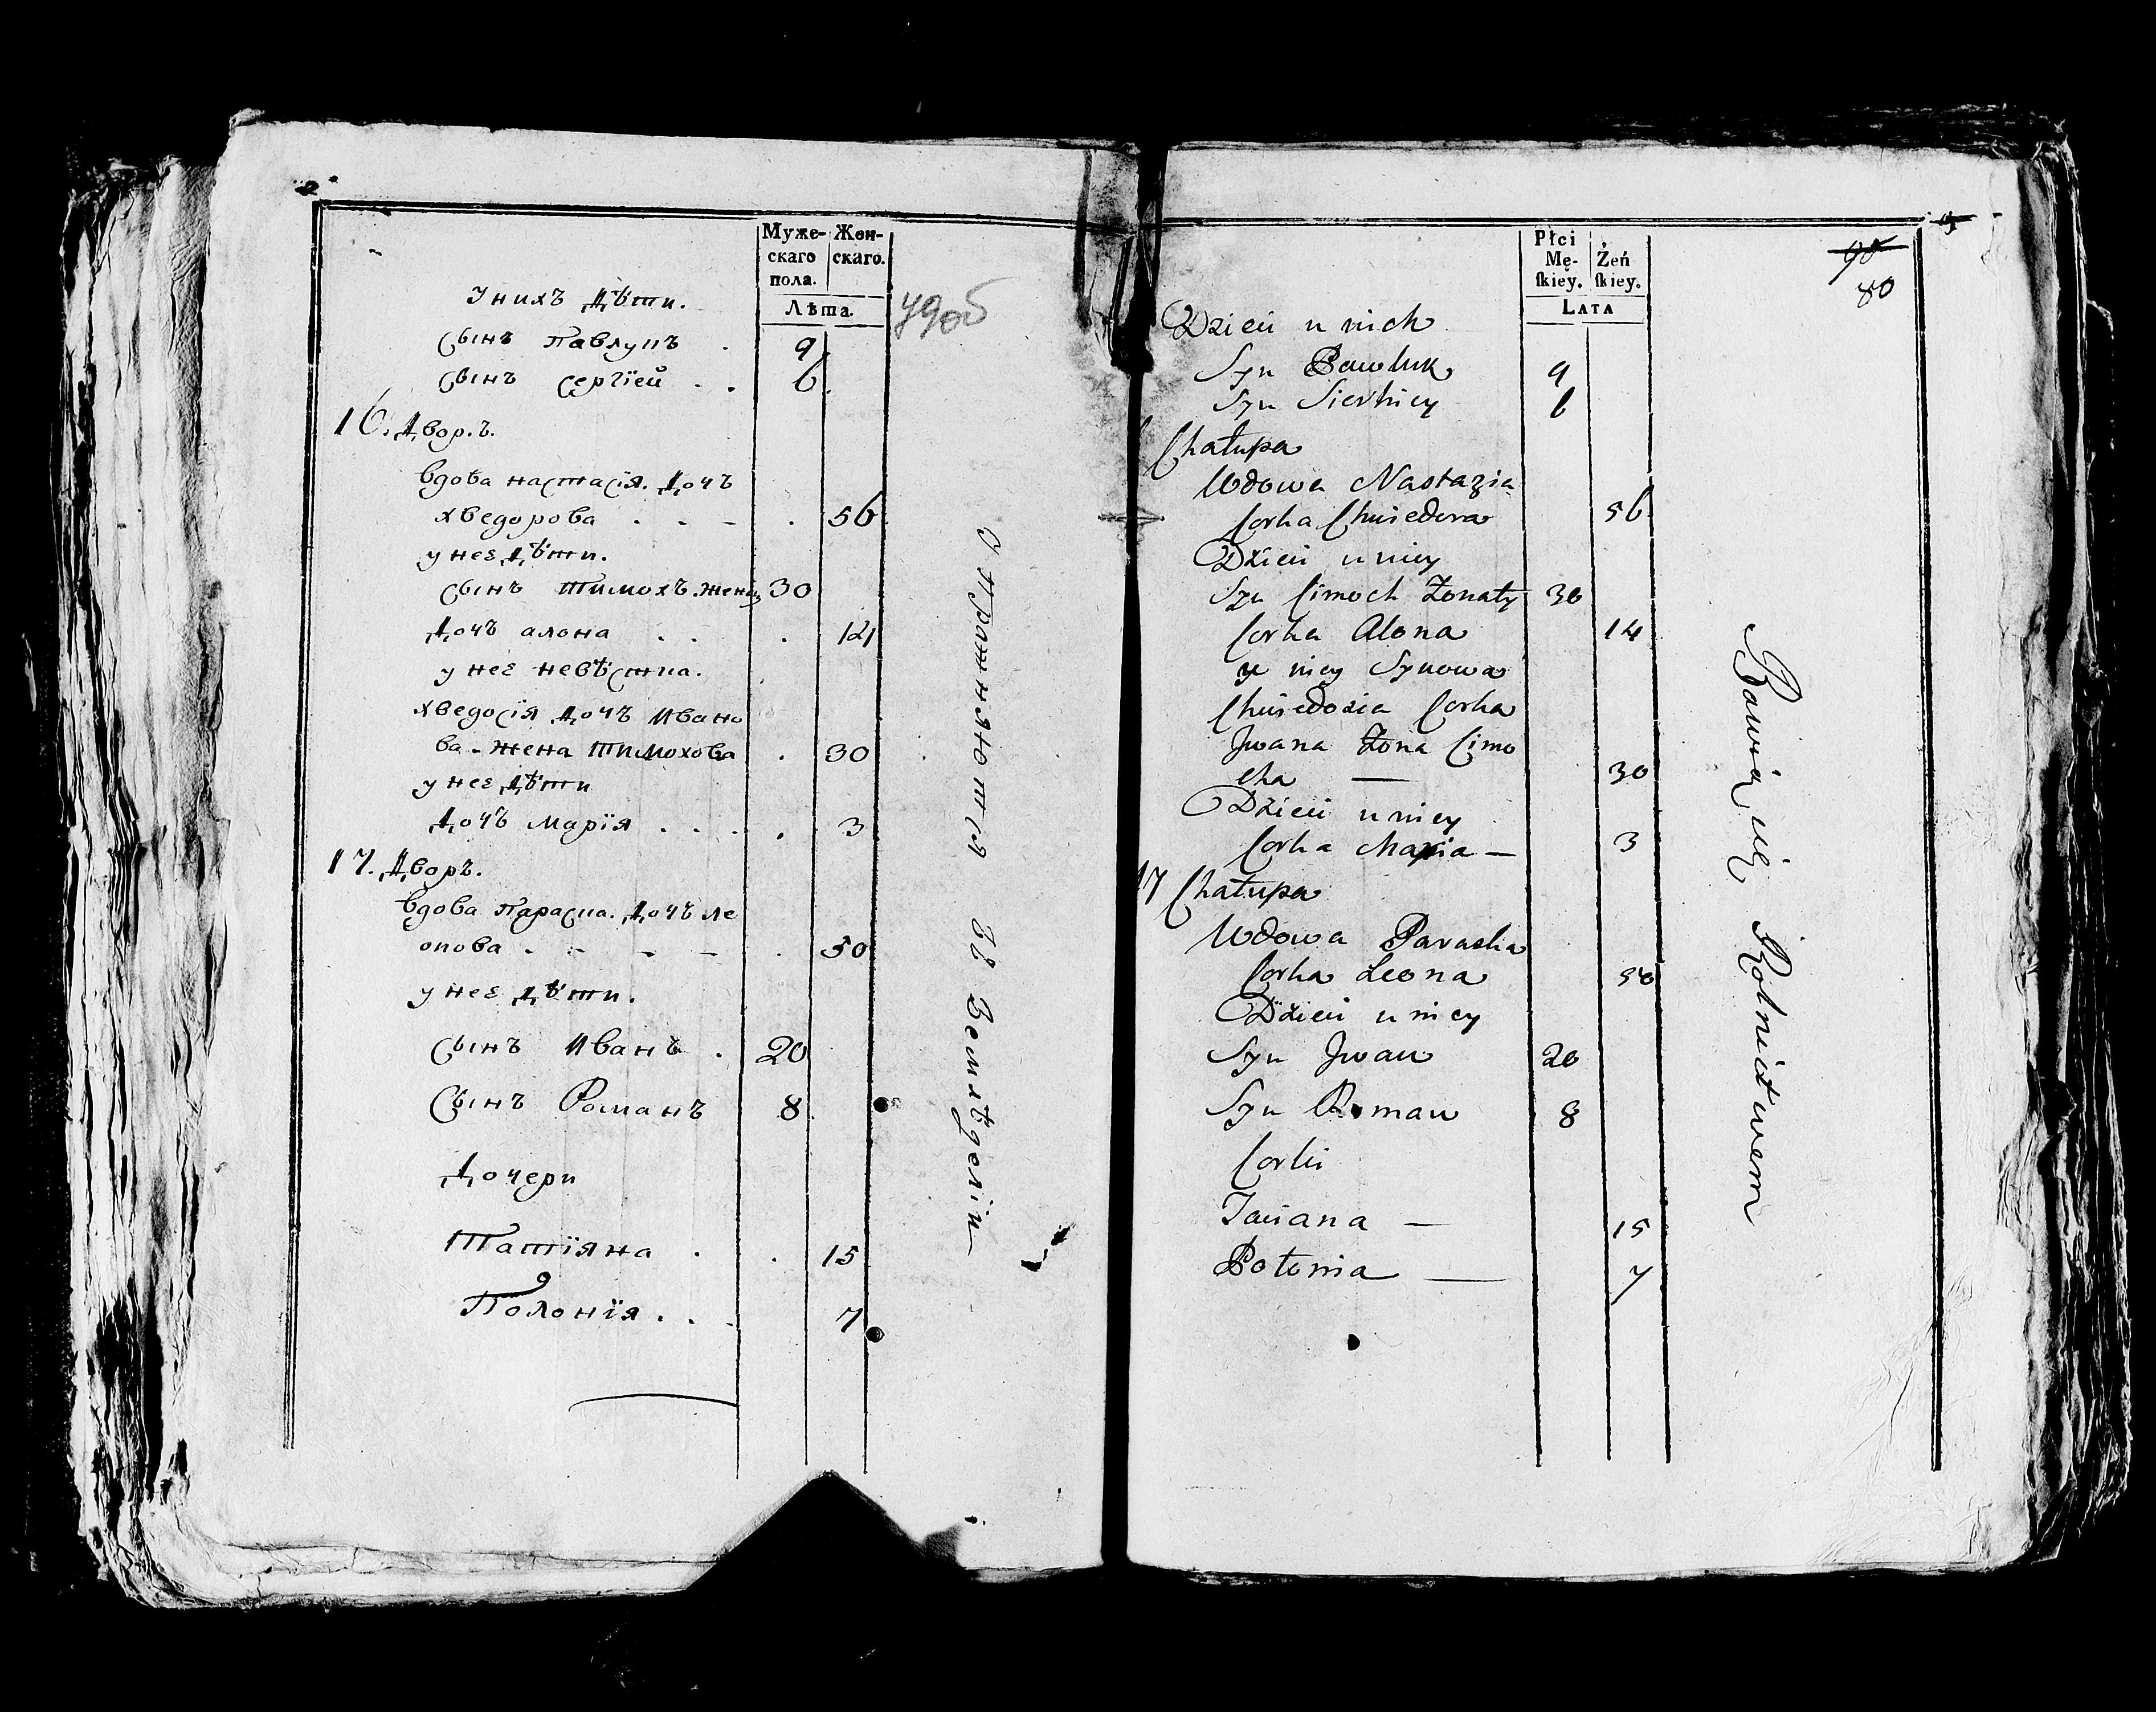 Муже-
скаго
пола.
Жен-
скаго.
Лѣта
У нихъ Дѣти.
Сынъ Павлукъ . 9
Сынъ Сергїей . . 6
16. Дворъ.
Вдова Настасїя. Дочъ
Хведорова . . - . 56
у нее Дѣти.
Сынъ Тимохъ. 30
Дочъ Алона . . . 14
у нее невѣстка.
Хведосїя Дочъ Ивано
ва - жена Тимохова . 30
у нее Дѣти
Дочъ Марїя . . . . 3
17. Дворъ.
Вдова Параска. Дочъ Ле
онова . - - - . 50
у нее Дѣти.
Сынъ Иванъ . 20
Сынъ Романъ 8
Дочери
Татїяна . . 15
Полонїя . . - 7
Упражняются въ Земледѣлїи
Płci
Mę-
ſkiey.
Żeń
ſkiey.
Lata
80
Dzieci u nich
Syn Pawluk 9
Syn Sierhiey 6
Chałupa
Wdowa Nastazia
Corka Chwiedora 56
Dzieci u niey
Syn Cimoch Żonaty 30
Corka Alona 14
u niey Synowa
Chwiedozia Corka
Jwana Żona Cimo
cha — 30
Dzieci u niey
Corka Maria — 3
17 Chałupa
Wdowa Paraska
Corka Leona 50
Dzieci u niey
Syn Jwan 20
Syn Roman 8
Corki
Taciana — 15
Połonia — 7
Bawią się Rolnictwem